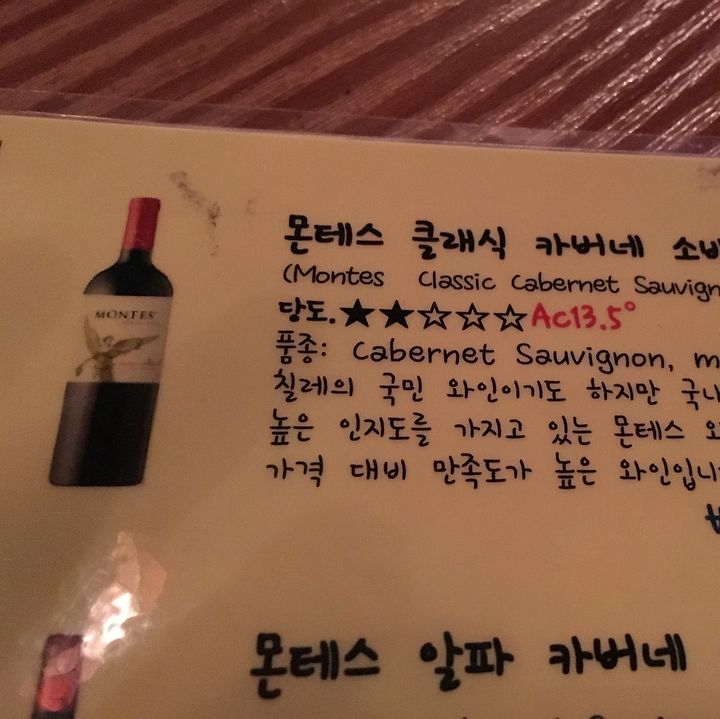 MONTES
몬테스 클래식 카버네
(Montes Classic Cabernet
당도.★★☆☆☆Ac13.5°
품종: Cabernet Sauvignon,
칠레의 국민 와인이기도 하지만
높은 인지도를 가지고 있는 몬테스
가격 대비 만족도가 높은
몬테스 알파 카버네